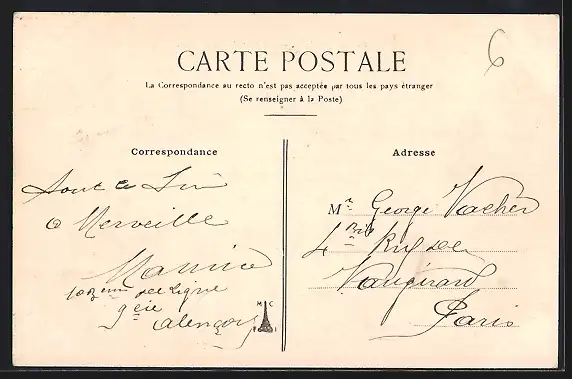 6
CARTE POSTALE
La Correspondance au recto n'est pas acceptée par tous les pays étranger
(Se renseigner à la Poste)
Correspondance
Tout
a Merveille
Maurice
103eme de Ligne
9 cie
alençon
M C
Adresse
Mr George Vacher
4 Bis Rue de
Vaugirard
Paris